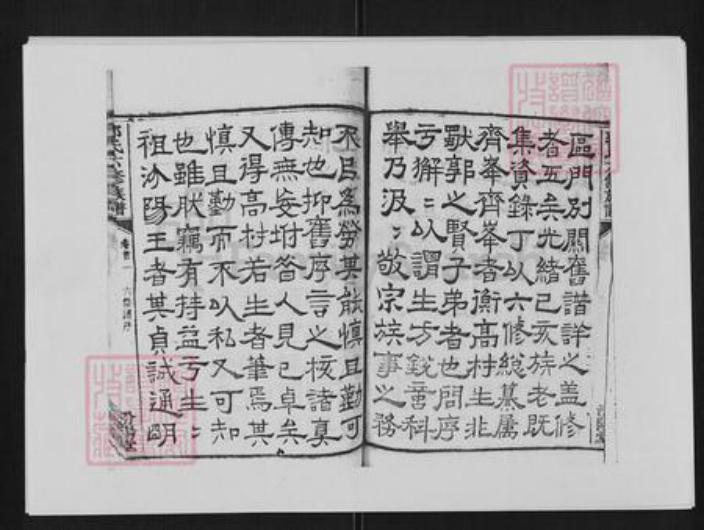 區門別闢舊譜詳之蓋修
者五矣光緒己亥族老既
集資錄丁以六修總纂屬
齊峯齊峯者衡高村生非
獸郭之賢子弟者也問序
亏獬獬以謂生方銳意科
舉乃汲汲敬宗族事之務
不呂為勞其能慎且勤可
知也抑舊序言之核諸真
傳無妄坿咎人見已卓矣
又得高村若生者筆焉其
慎且勤而不以私又可知
也雖肰竊有持益亏生生
祖汾陽王者其貞誠通明
郭氏六修族譜
卷首一
六修譜序